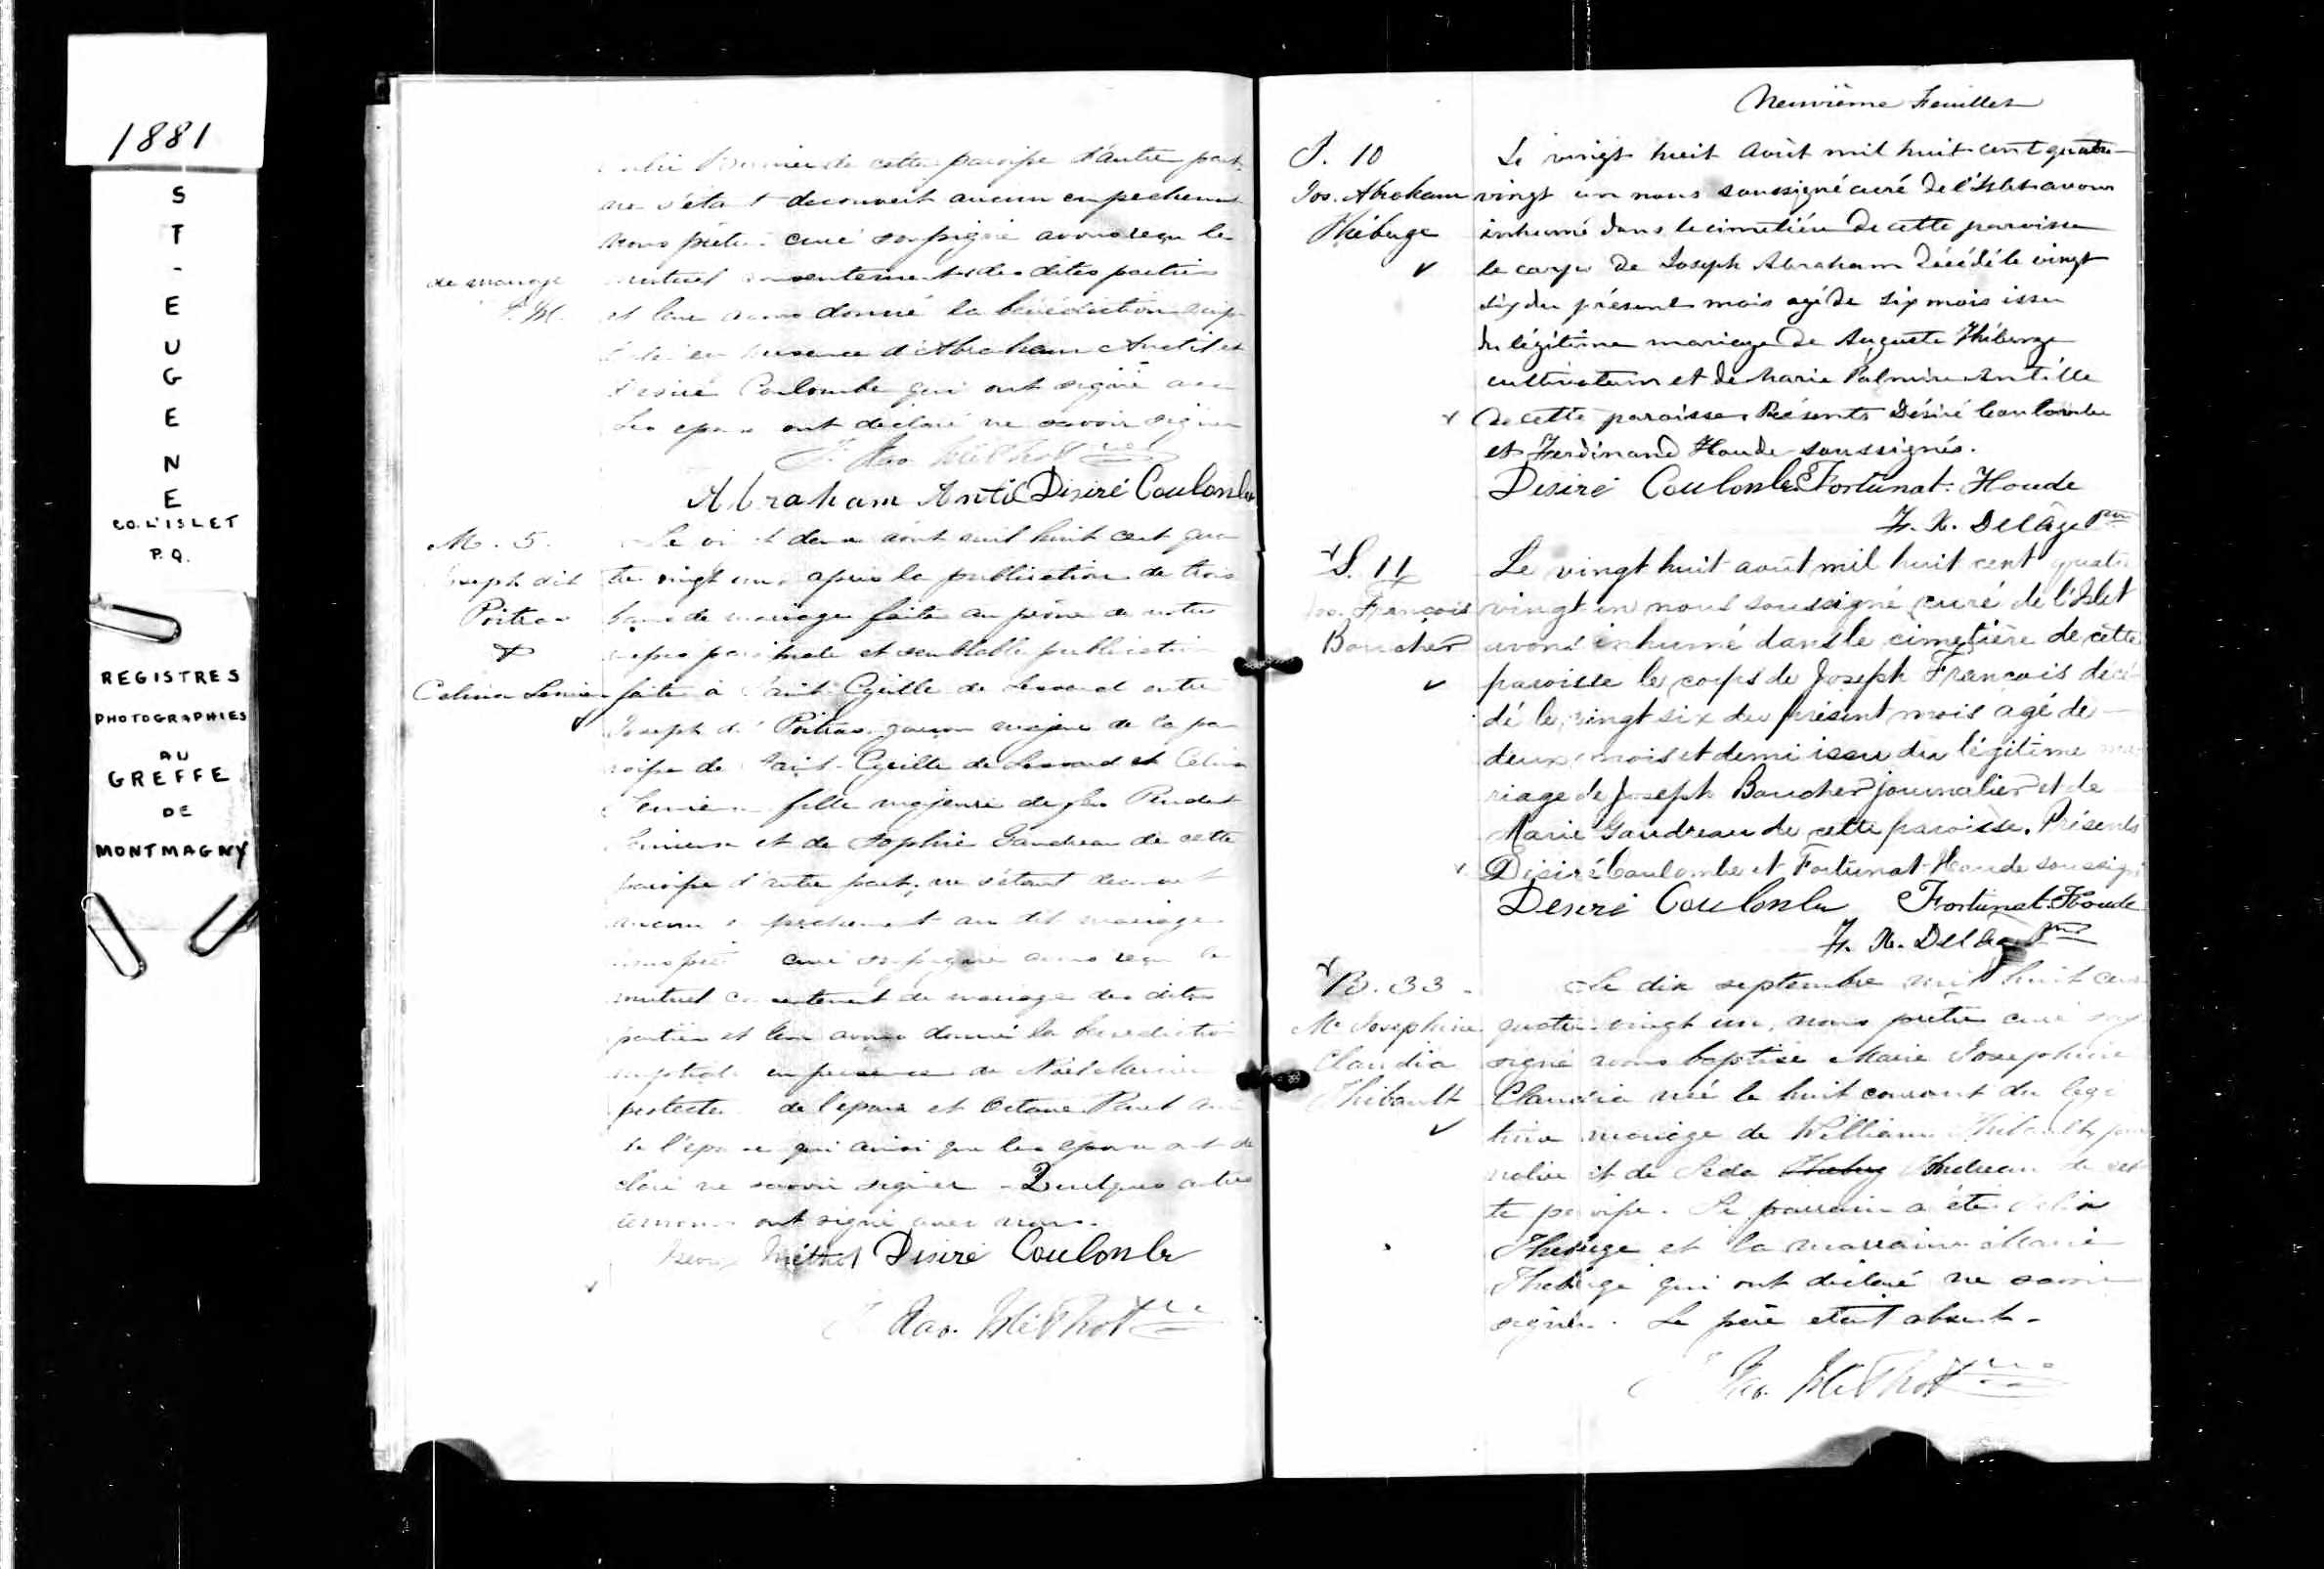 1881
ST-EUGENE
CO. L'ISLET
P.Q.
REGISTRES
PHOTOGRAPHIES
AU
GREFFE
DE
MONTMAGNY
de cette paroisse d'autre part,
ne s'étant decouvert aucun empechement
nous prêtre curé soussigné avons reçu le
de mariage
mutuel consentement des dites parties
et leur avons donné la bénédiction
en presence d'Abraham Anctil et
Desiré Coulombe qui ont signé
Les epoux ont déclaré ne savoir signer
Abraham Antil Disiré Coulombe
M. 5.
Le août mil huit cent qua
Joseph dit
tre vingt un, apres la publication de trois
Poitras
bans de mariage faite au prône de notre
&
messe paroissiale et semblable publication
Celina
faite à Saint Cyrille de Lessard entre
Joseph Poitras garçon majeur de la pa
roisse de Saint-Cyrille de Lessard et Celina
fille majeure de feu
et de Sophie Gaudreau de cette
paroisse d'autre part, ne s'étant decouvert
aucun empechement au dit mariage
nous prêtre curé soussigné avons reçu le
mutuel consentement de mariage des dites
parties et leur avons donné la benediction
nuptiale en presence de Noël
de l'epoux et Octave
de l'epouse qui ainsi que les epoux ont dé
claré ne savoir signer - Quelques autres
temoins ont signé avec nous.
Méthot Disiré Coulombe
Méthot
Neuvième Feuillet
S. 10
Le vingt huit Août mil huit cent quatre
Jos. Abraham
vingt un nous soussigné curé de l'Islet avons
Théberge
inhumé dans le cimetière de cette paroisse
le corps de Joseph Abraham décédé le vingt
six du présent mois agé de six mois issu
du légitime mariage de Auguste Théberge
cultivateur et de Marie Palmire Antille
de cette paroisse. Présents Désiré Coulombe
et Ferdinand Houde soussignés.
Desiré Coulombe Fortunat. Houde
F. X. Delâge Ptre
S. 11
Le vingt huit août mil huit cent quatre
Jos. François
vingt un nous soussigné curé de l'Islet
Boucher
avons inhumé dans le cimetière de cette
paroisse le corps de Joseph François décé
dé le vingt six du présent mois agé de
deux mois et demi issu du légitime ma
riage de Joseph Boucher journalier et de
Marie Gaudreau de cette paroisse. Présents
Disiré Coulombe et Fortunat Houde soussign
Desiré Coulombe Fortunat. Houde
F. X. Delâge Ptre
B. 33
Le dix septembre mil huit cent
Me Josephine
quatre-vingt un, nous prêtre curé sous
Claudia
signé avons baptisé Marie Josephine
Thibault
Claudia née le huit courant du légi
time mariage de William Thibault jour
nalier et de de cet
te paroisse. Le parrain a été
Theberge et la marraine Marie
Theberge qui ont déclaré ne savoir
signer. Le père etait absent.
Méthot